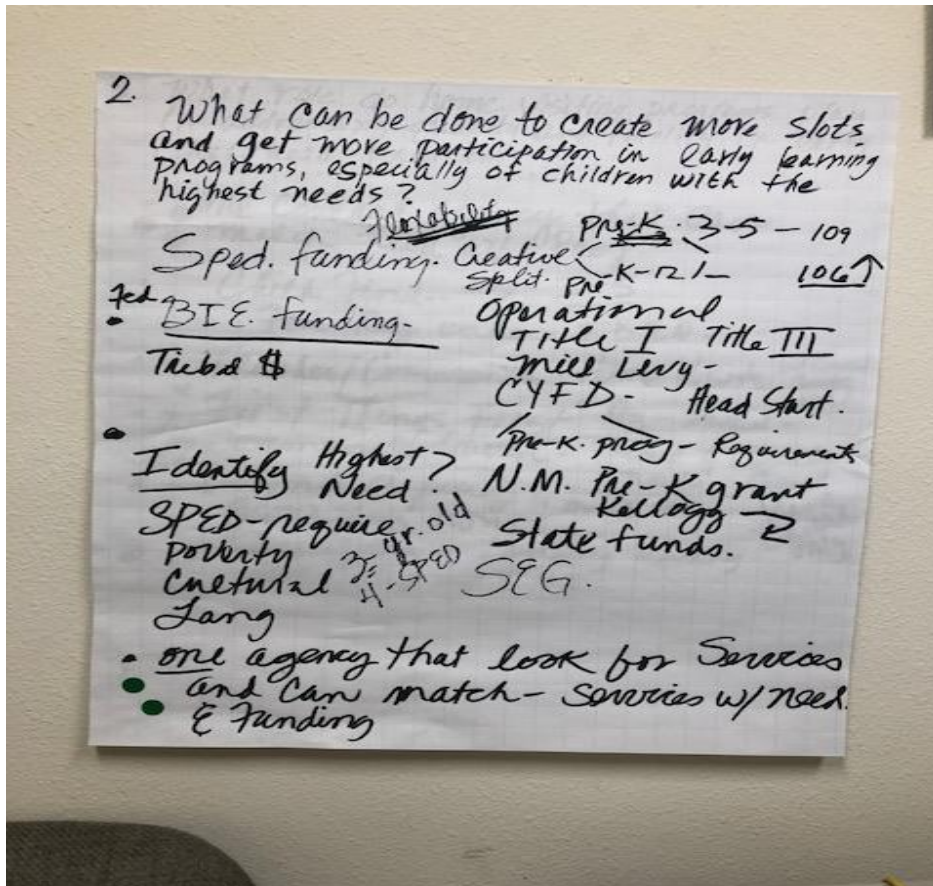 2.
What can be done to create more slots
and get more participation in early learning
programs, especially of children with the
highest needs?
Flexability
Sped. funding. Creative Split.
Pre-K. 3-5 - 109
Pre K-12 1- 106↑
Fed
• BIE. funding-
Tribal $
Operational
Title I Title III
Mill Levy-
CYFD- Head Start.
Pre-K. prog- Requirements
N.M. Pre-K grant
Kellogg
State funds.
SEG.
• Identify Highest Need?
SPED-require
3 yr. old
4-SPED
Poverty
Cultural
Lang
• one agency that look for Services
and can match- services w/ need.
& Funding